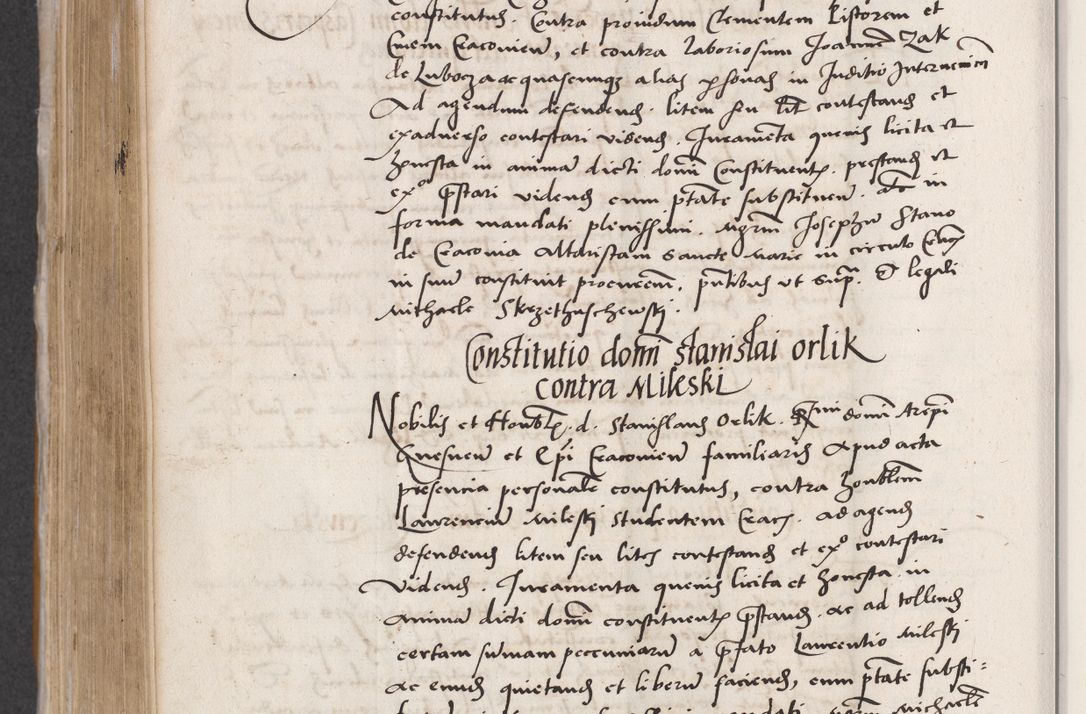 constitutus. Contra providum Clementem Pistorem et
Civem Cracovien, et contra laboriosum Joannē Zak
de Luborza ac quascunq alias psonas in Juditio Intervenien
Ad agendum defendend. litem seu lit contestand et
exadverso contestari vidend. Juramēta quevis licita et
honesta in animā dicti domi Constituent. prestand et
exº pstari vidend cum ptate substituen. ac in
forma mandati plenissimi. Mgrm Josephū Stano
de Cracovia Altaristam Sancte Marie in circulo Crac
in suū constituit procurem, pntibus ut supª. D legali
Michaele Skrzethuschewskj.
Constitutio domi Stanislai Orlik
contra Mileski
Nobilis et Honobl. d. Stanislaus Orlik. Rmi domi Arepi
Gnesnen et Epi Cracovien familiaris Apud acta
presencia personale constitutus, contra honoblem
Laurencium Mileskj Studentem Crac. ad agend
defendend litem seu lites contestand et exº contestari
Vidend. Juramenta quevis licita et honesta. in
animā dicti domi constituent pstand. ac ad tollend
certam summam peccuniarū a pfato Laurentio Mileskj
ac eund quietand et liberū faciend, cum ptate substi=